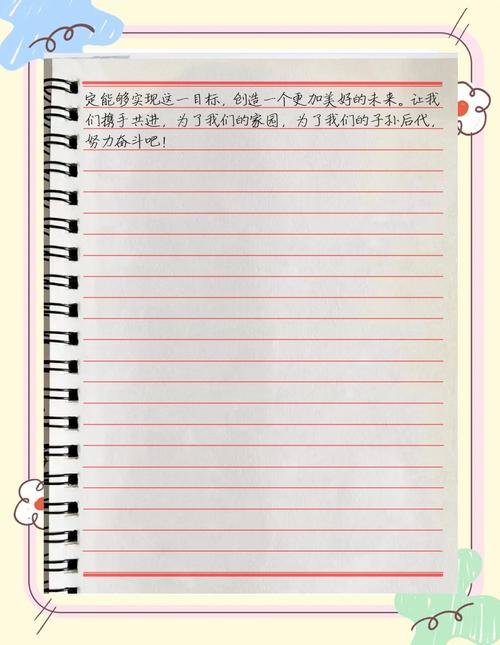 定能够实现这一目标，创造一个更加美好的未来。让我
们携手共进，为了我们的家园，为了我们的子孙后代，
努力奋斗吧！